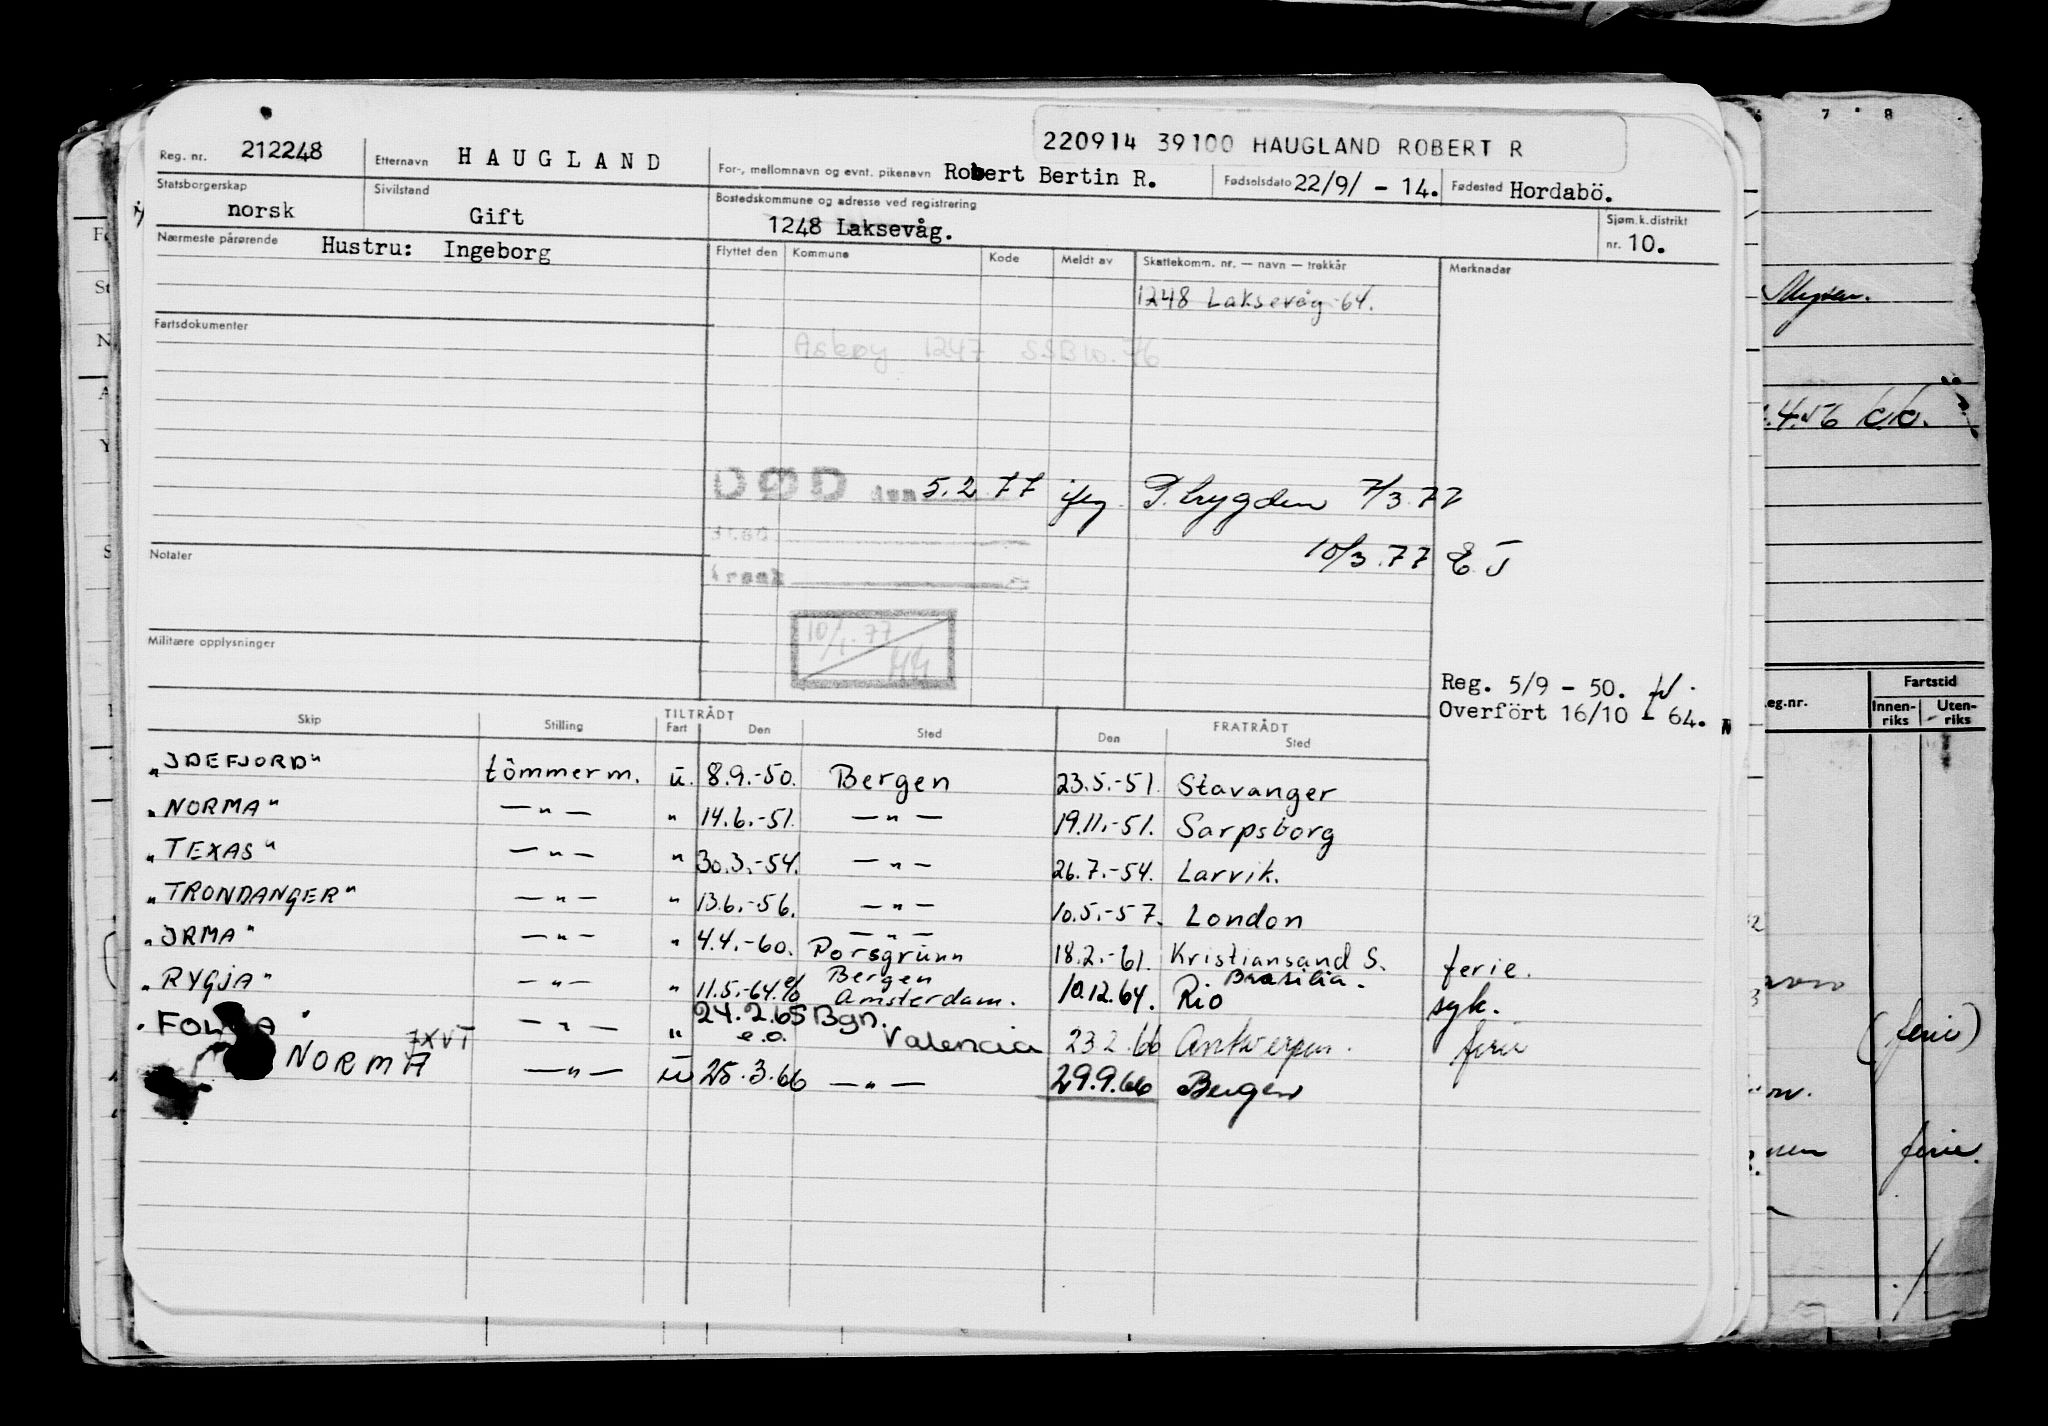 220914 39100 HAUGLAND ROBERT R
Reg. nr. 212248 Etternavn HAUGLAND For-, mellomnavn og evnt. pikenavn Robert Bertin R. Fødselsdato 22/9/ - 14. Fødested Hordabö.
Statsborgerskap norsk Sivilstand Gift Bostedskommune og adresse ved registrering 1248 Laksevåg. Sjøm.k.distrikt nr. 10.
Nærmeste pårørende Hustru: Ingeborg Flyttet den Kommune Kode Meldt av Skattekomm. nr. — navn — trekkår Merknader
1248 Laksevåg -64.
Fartsdokumenter
Askøy 1247 SSB 10.76
DØD den 5.2.77 7/3.77
sted
10/3.77 E J
Notater
10/1.77
Militære opplysninger
Reg. 5/9 - 50.
Overfört 16/10 - 64.
Skip Stilling TILTRÅDT Fart Den Sted FRATRÅDT Den Sted
"JDEFJORD" tömmerm. u. 8.9.-50. Bergen 23.5.-51. Stavanger
"NORMA" — " — " 14.6.-51. — " — 19.11.-51. Sarpsborg
"TEXAS" — " — " 30.3.-54. — " — 26.7.-54. Larvik.
"TRONDANGER" — " — " 13.6.-56. — " — 10.5.-57. London
"JRMA" — " — " 4.4.-60. — " — Porsgrunn 18.2.-61. Kristiansand S. ferie.
"RYGJA" — " — " 11.5.-64. Bergen Amsterdam. 10.12.64. Rio Brasilia. syk.
— " — " 24.2.65 Bgn. e.o. Valencia 23 2.66 Antwerpen. ferie
NORMA JXVT — " — u 25.3.66 — " — 29.9.66 Bergen
7 8
.4.56
eg.nr. Fartstid
Innen-riks Uten-riks
(ferie)
ferie.